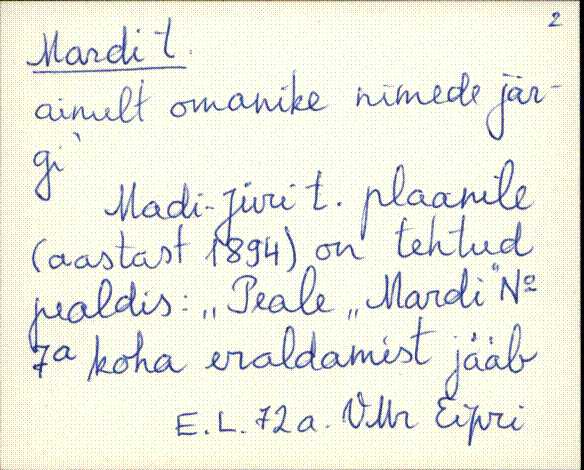 2
Mardi t.
ainult omanike nimede jär-
gi`
Madi-Jüri t. plaanile
(aastast 1894) on tehtud
pealdis: „Peale „Mardi" №
7a koha eraldamist jääb
E.L. 72 a. VMr Eipri